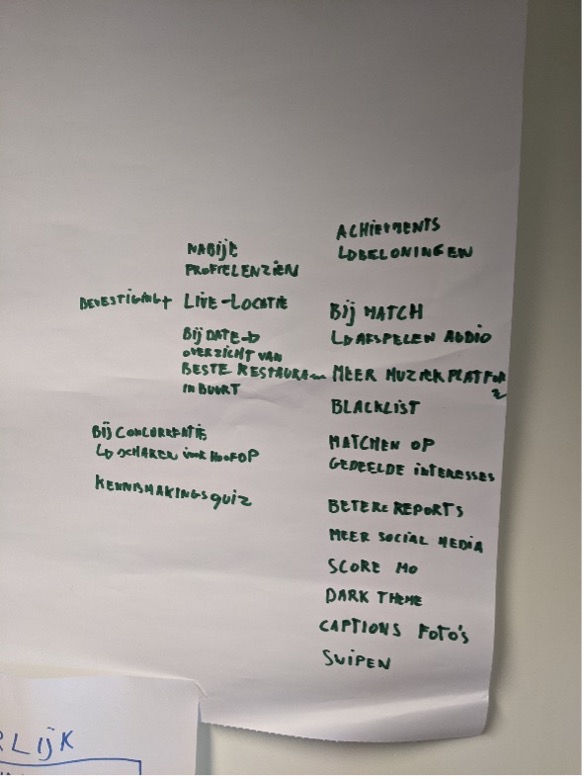 NABIJE
PROFIELEN ZIEN
BEVESTIGING + LIVE-LOCATIE
BIJ DATE →
OVERZICHT VAN
BESTE RESTAURAN
IN BUURT
BIJ CONCURRENTIE
↳ SCHAKEN
KENNISMAKINGSQUIZ
ACHIEVMENTS
↳ BELONINGEN
BIJ MATCH
↳ AFSPELEN AUDIO
MEER MUZIEKPLATFOR
BLACKLIST
MATCHEN OP
GEDEELDE INTERESSES
BETERE REPORTS
MEER SOCIAL MEDIA
SCORE
DARK THEME
CAPTIONS FOTO'S
SWIPEN
RLIJK